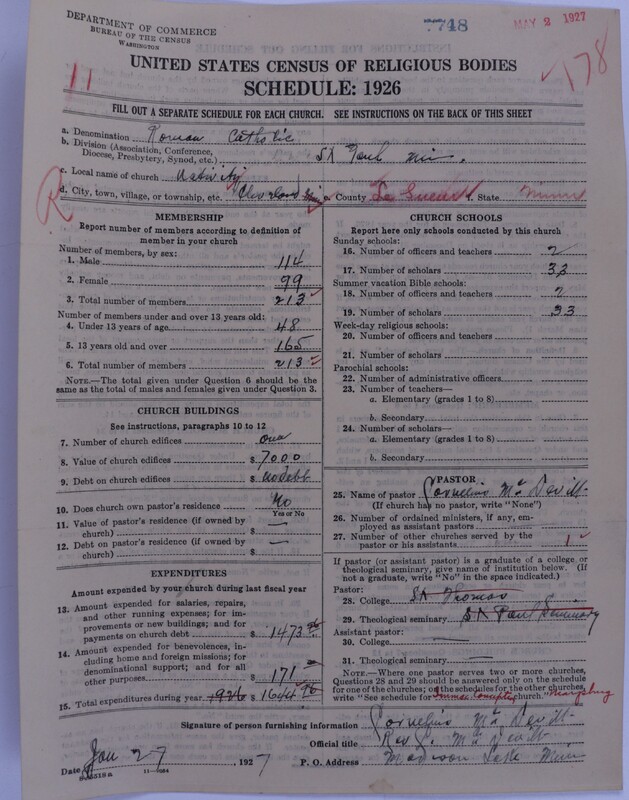 DEPARTMENT OF COMMERCE
BUREAU OF THE CENSUS
WASHINGTON
748
MAY 2 1927
178
11
UNITED STATES CENSUS OF RELIGIOUS BODIES
SCHEDULE: 1926
FILL OUT A SEPARATE SCHEDULE FOR EACH CHURCH. SEE INSTRUCTIONS ON THE BACK OF THIS SHEET
a. Denomination Roman Catholic
b. Division (Association, Conference,
Diocese, Presbytery, Synod, etc.) St Paul Min.
c. Local name of church Nativity
R
d. City, town, village, or township, etc. Cleveland e. County Le Sueur f. State Minn
MEMBERSHIP
Report number of members according to definition of
member in your church
Number of members, by sex:
1. Male 114
2. Female 99
3. Total number of members 213
Number of members under and over 13 years old:
4. Under 13 years of age 48
5. 13 years old and over 165
6. Total number of members 213
NOTE.—The total given under Question 6 should be
the same as the total of males and females given under Question 3.
CHURCH BUILDINGS
See instructions, paragraphs 10 to 12
7. Number of church edifices one
8. Value of church edifices $ 7000
9. Debt on church edifices $ no debt
10. Does church own pastor's residence No
Yes or No
11. Value of pastor's residence (if owned by
church) $ —
12. Debt on pastor's residence (if owned by
church) $ —
EXPENDITURES
Amount expended by your church during last fiscal year
13. Amount expended for salaries, repairs,
and other running expenses; for im-
provements or new buildings; and for
payments on church debt $ 1473.96
14. Amount expended for benevolences,
including home and foreign missions; for
denominational support; and for all
other purposes $ 171
15. Total expenditures during year 1926 $ 1644.96
CHURCH SCHOOLS
Report here only schools conducted by this church
Sunday schools:
16. Number of officers and teachers 2
17. Number of scholars 33
Summer vacation Bible schools:
18. Number of officers and teachers 2
19. Number of scholars 33
Week-day religious schools:
20. Number of officers and teachers
21. Number of scholars
Parochial schools:
22. Number of administrative officers
23. Number of teachers—
a. Elementary (grades 1 to 8)
b. Secondary
24. Number of scholars—
a. Elementary (grades 1 to 8)
b. Secondary
PASTOR
25. Name of pastor Cornelius McDevitt
(If church has no pastor, write "None")
26. Number of ordained ministers, if any, em-
ployed as assistant pastors
27. Number of other churches served by the
pastor or his assistants 1
If pastor (or assistant pastor) is a graduate of a college or
theological seminary, give name of institution below. (If
not a graduate, write "No" in the space indicated.)
Pastor:
28. College St Thomas
29. Theological seminary St Paul Seminary
Assistant pastor:
30. College —
31. Theological seminary —
NOTE.—Where one pastor serves two or more churches,
Questions 28 and 29 should be answered only on the schedule
for one of the churches; on the schedules for the other churches,
write "See schedule for church."
Signature of person furnishing information Cornelius McDevitt
Official title Rev C. McDevitt
Date Jan 27, 1927 P. O. Address Madison Lake Minn
11—9064